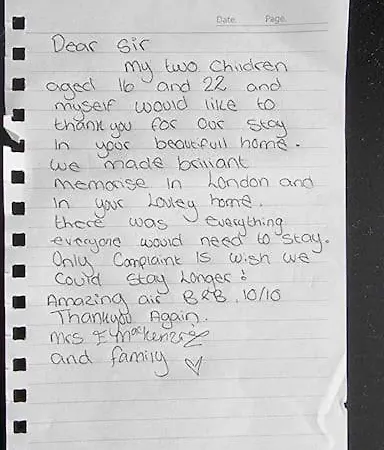 Date. Page.
Dear Sir
My two Children
aged 16 and 22 and
myself would like to
thank you for our stay
In your beautifull home.
we made brillant
memorise In London and
In your Lovley home.
there was everything
everyone would need to stay.
Only Complaint Is wish we
Could stay Longer!
Amazing air B&B. 10/10
Thankyou Again.
Mrs E Mackenzie
and family ♡